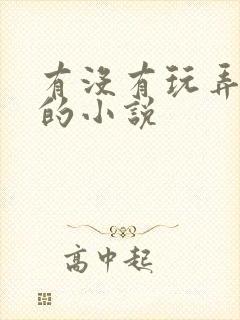 有没有玩弄
的小说
高中起